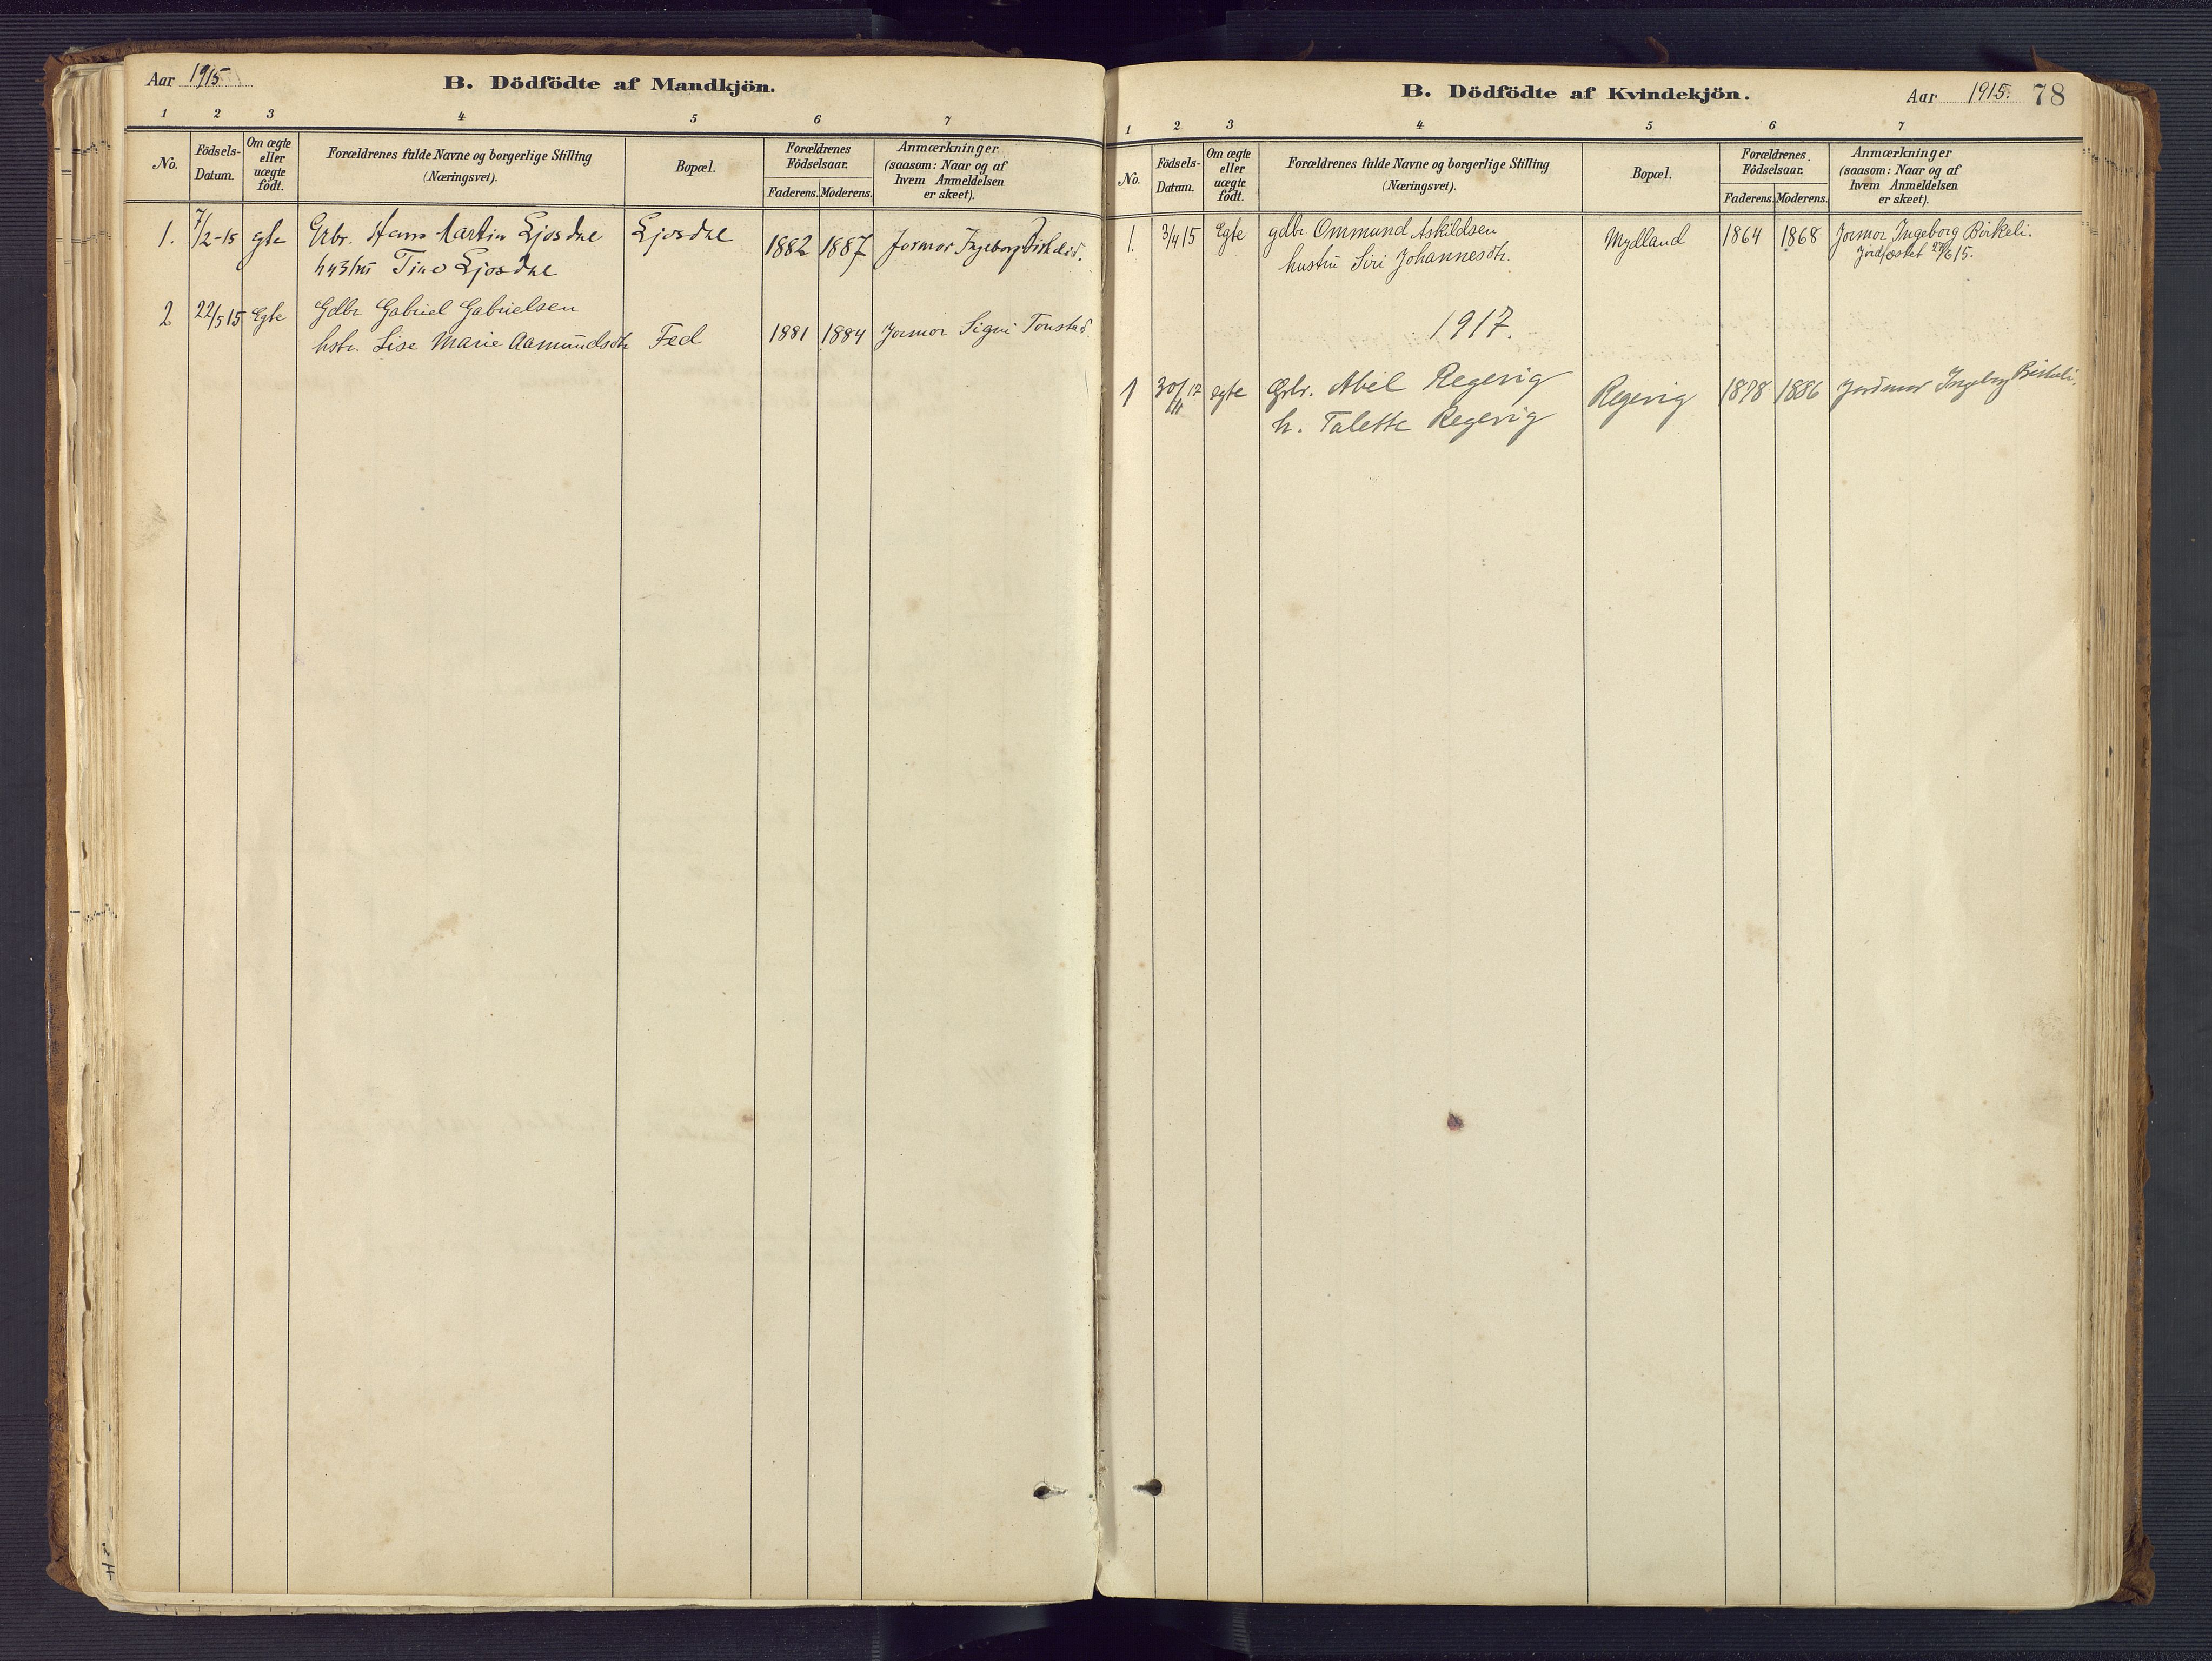 Aar 1915
B. Dödfödte af Mandkjön.
1 2 3 4 5 6 7
No.
Födsels-
Datum.
Om ægte
eller
uægte
födt.
Forældrenes fulde Navne og borgerlige Stilling
(Næringsvei).
Bopæl.
Forældrenes
Födselsaar.
Faderens. Moderens.
Anmærkninger
(saasom: Naar og af
hvem Anmeldelsen
er skeet).
1. 7/2-15 egte Grbr. Hans Martin Ljosdal Ljosdal 1882 1887 Jormor Ingeborg Birkelid.
Ljosdal
2 22/5 15 Egte Gdbr Gabriel Gabrielsen
hstr. Lise Marie Aamundsdtr Fed 1881 1884 Jormor Signi Tonstad
B. Dödfödte af Kvindekjön.
Aar 1915. 78
1 2 3 4 5 6 7
No.
Födsels-
Datum.
Om ægte
eller
uægte
födt.
Forældrenes fulde Navne og borgerlige Stilling
(Næringsvei).
Bopæl.
Forældrenes
Födselsaar.
Faderens. Moderens.
Anmærkninger
(saasom: Naar og af
hvem Anmeldelsen
er skeet).
1. 3/4 15 Egte gdbr Ommund Askildsen Mydland 1864 1868 Jormor Ingeborg Birkeli.
hustru Siri Johannesdtr. Jordfæstet 27/6 15.
1917.
1 30/11 17 egte Grbr. Abel Regevig Regevig 1878 1886 Jordmor Ingeborg Birkeli.
h. Talette Regevig